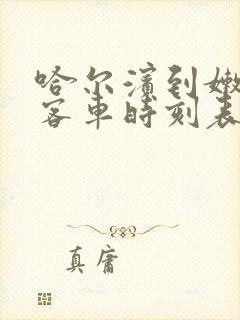 哈尔滨到嫩
客车时刻表
真庸